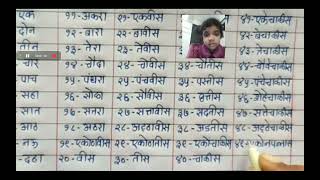 एक ११-अकरा २१-एकवीस ४१-एकेचाळीस
दोन १२-बारा २२-बावीस ४२-बेचाळीस
तीन १३-तेरा २३-तेवीस ४३-त्रेचाळीस
चार १४-चौदा २४-चोवीस ३४-चौतीस
पाच १५-पंधरा २५-पंचवीस ३५-पस्तीस ४५-पंचेचाळीस
सहा १६-सोळा ३६-छत्तीस ४६-सेहेचाळीस
सात १७-सतरा २७-सत्तावीस ३७-सदतीस ४७-सत्तेचाळीस
आठ १८-अठरा २८-अठ्ठावीस ३८-अडतीस ४८-अठ्ठेचाळीस
नऊ २९-एकोणतीस ३९-एकोणचाळीस ४९-एकोणपन्नास
दहा २०-वीस ३०-तीस ४०-चाळीस